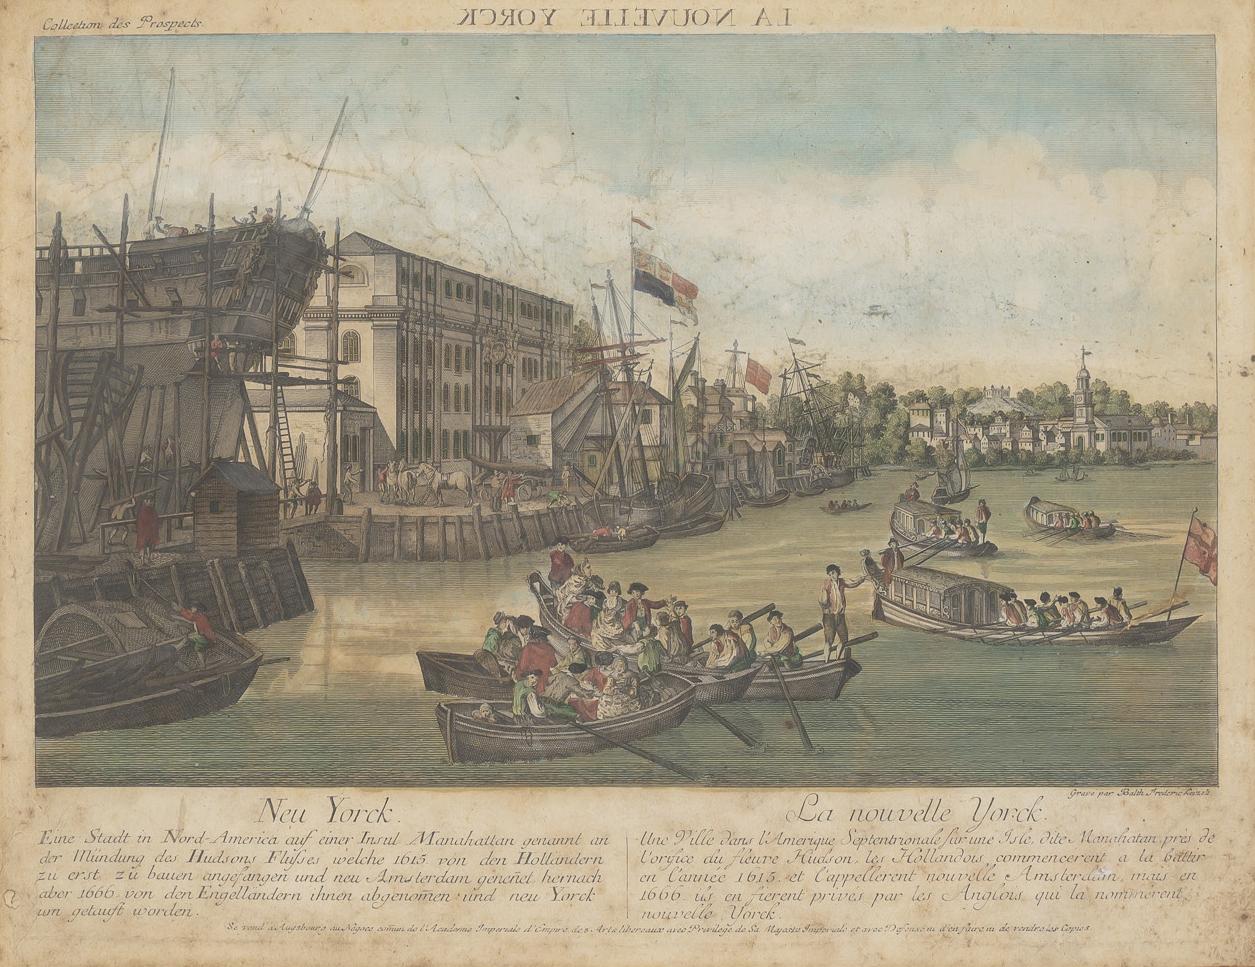 Collection des Prospects.
LA NOUVELLE YORCK
Grave par Balth. Frederic Leizelt.
Neu Yorck.
Eine Stadt in Nord-America auf einer Insul Manahattan genannt an
der Mündung des Hudsons Flußes welche 1615. von den Holländern
zu erst zu bauen angefangen und neu Amsterdam geneñet hernach
aber 1666. von den Engelländern ihnen abgenom̄en und neu Yorck
um getauft worden.
La nouvelle Yorck.
Une Ville dans l'Amerique Septentrionale sur une Isle, dite Manahatan, près de
l'orifice du fleuve Hudson, les Hollandois commencerent a la battir
en l'année 1615. et l'appellerent nouvelle Amsterdam, mais en
1666. ils en fierent privés par les Anglois, qui la nommerent,
nouvelle Yorck.
Se vend a Augsbourg au Négoce comun de l'Academie Imperiale d'Empire des Arts libereaux avec Privilege de Sa Majesté Imperiale et avec Defense ni d'en faire ni de vendre les Copies